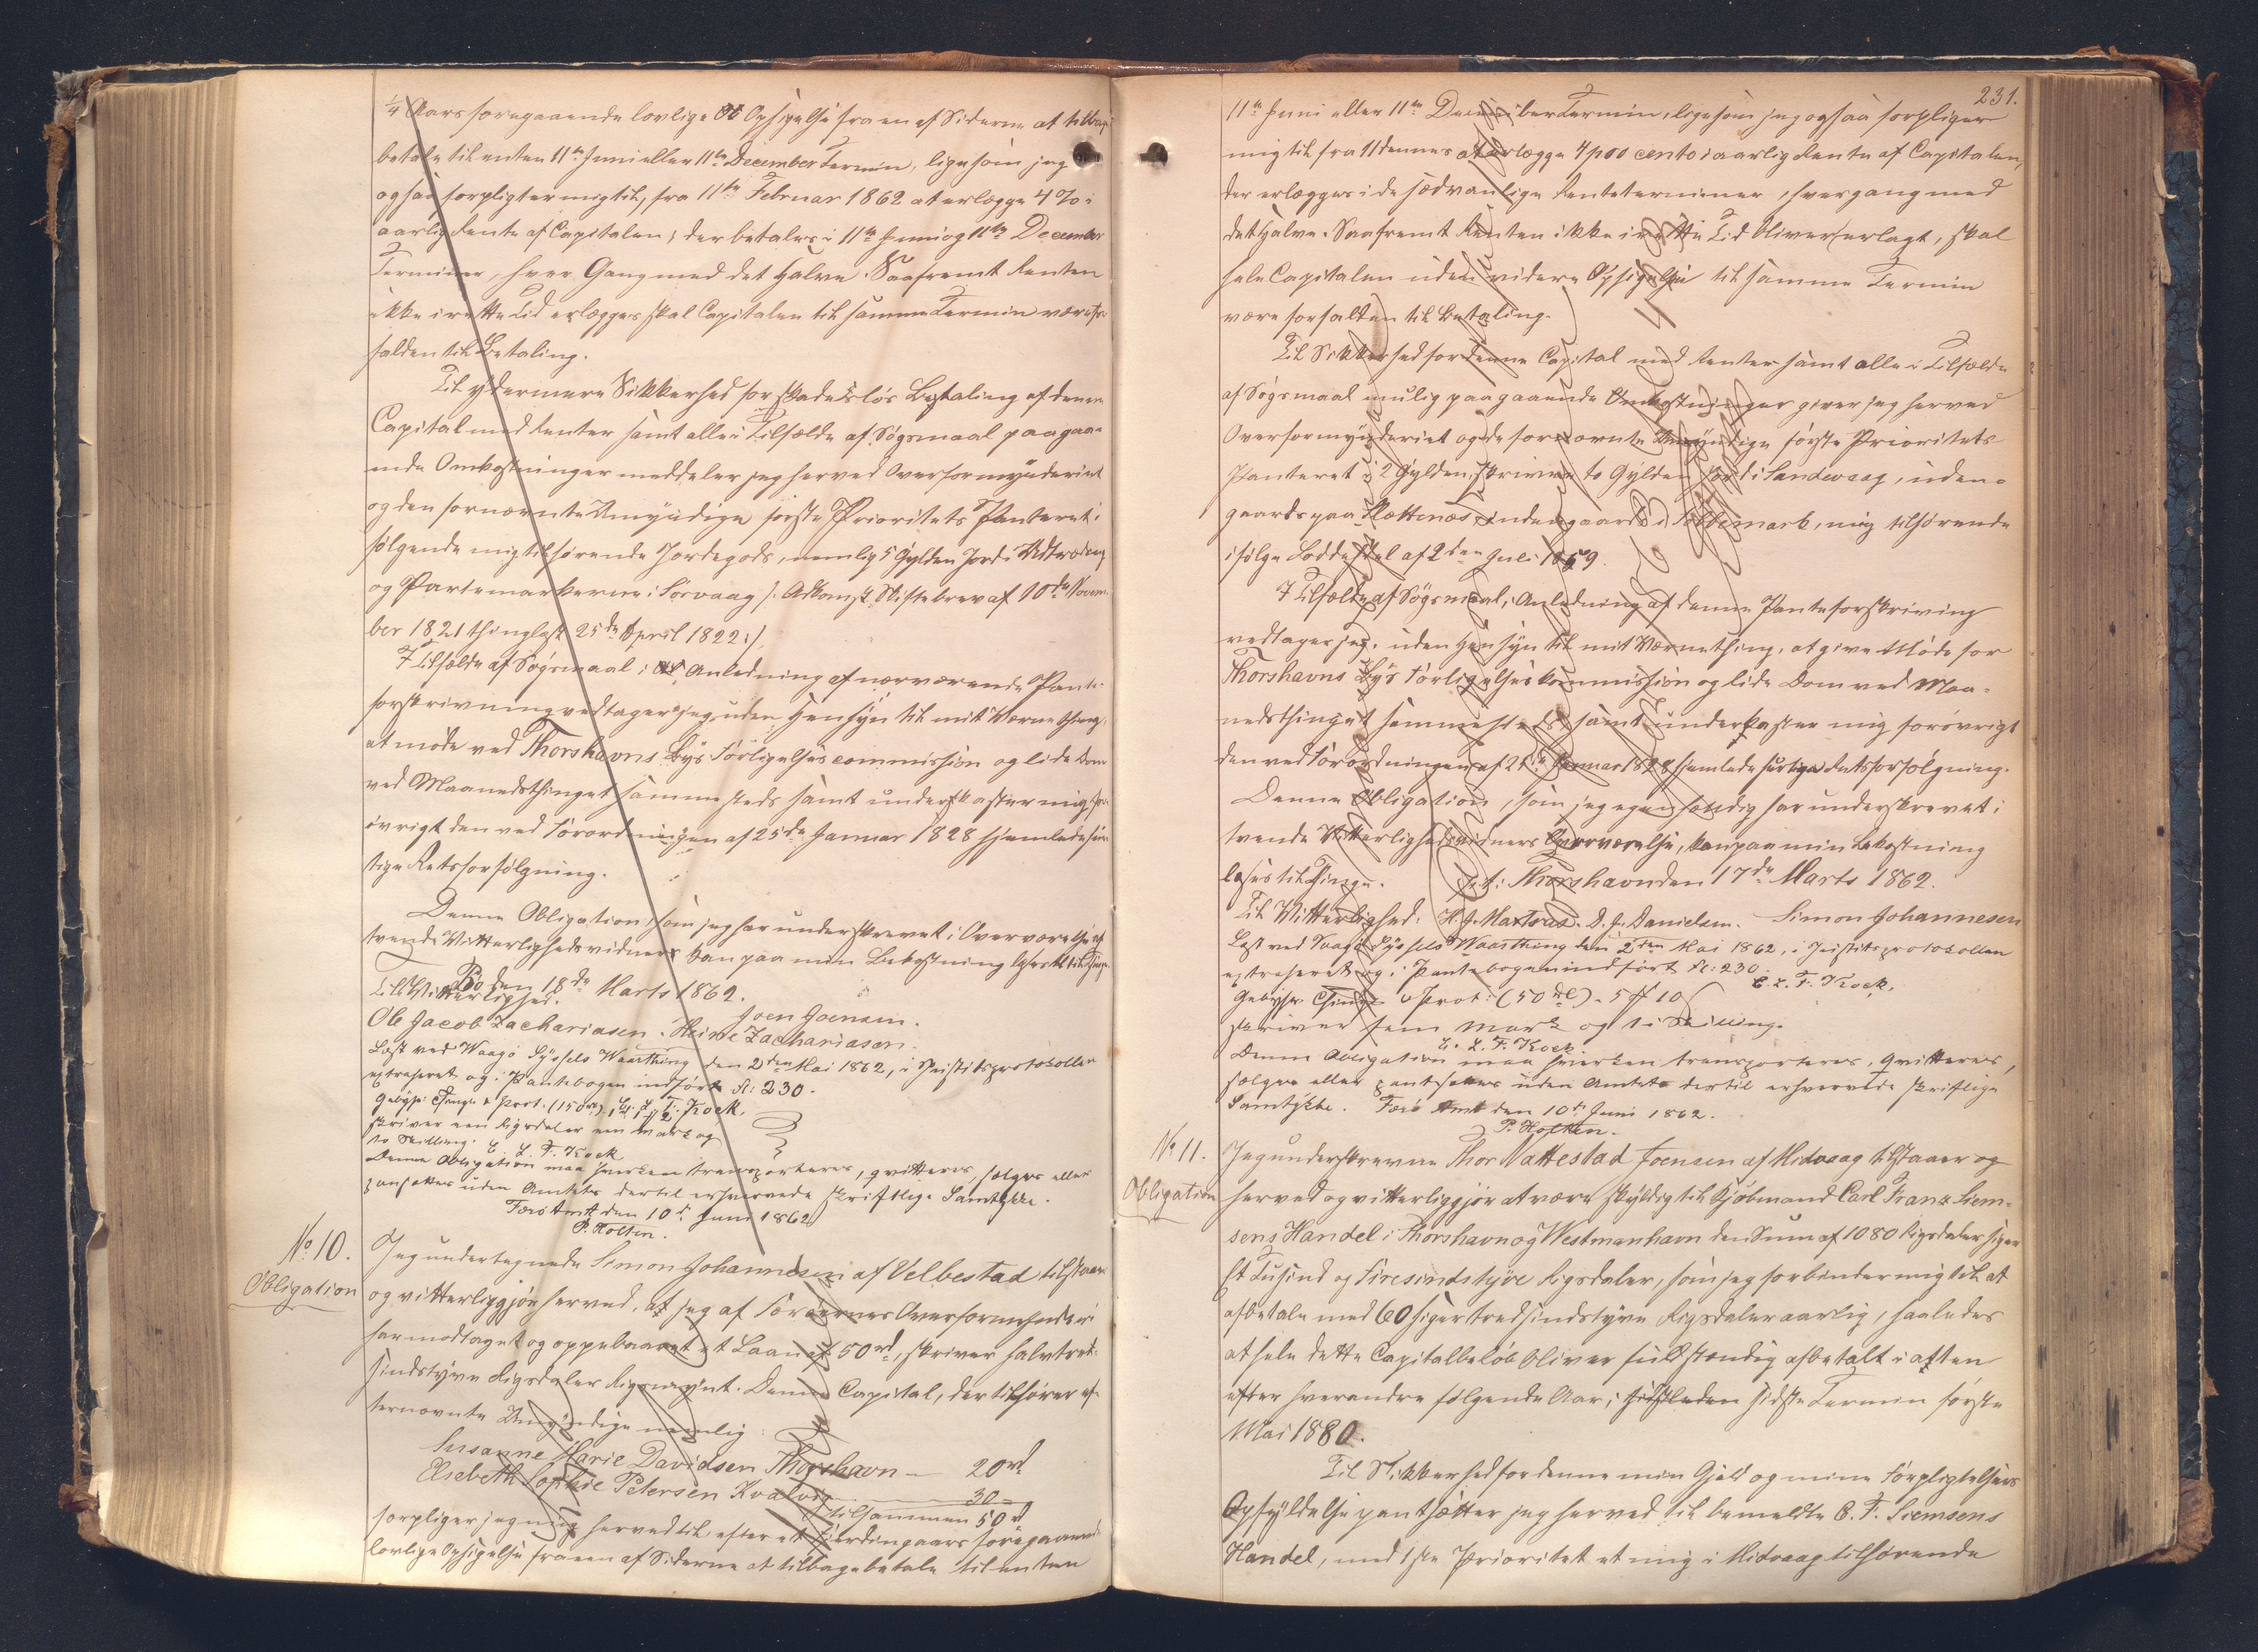 1/4 Aars foregaaende lovlige Opsigelse fra en af Siderne at tilbage
betale til enten 11te Juni eller 11te December Termin, ligesom jeg
ogsaa forpligter mig til, fra 11te Februar 1862 at erlægge 4 % i
aarlig Rente af Capitalen, der betales i 11te Juni og 11te December
Terminer, hver Gang med det Halve. Saafremt Renten
ikke i rette Tid erlægges skal Capitalen til samme Termin være for
falden til Betaling.
Til ydermere Sikkerhed for skadesløs Betaling af denne
Capital med Renter samt alle i Tilfælde af Søgsmaal paagaa-
ende Omkostninger meddeler jeg herved Overformynderiet
og den fornævnte Umyndige første Prioritets Panteret i
følgende mig tilhørende Jordegods, nemlig 5 Gylden Jord i
og Partemarkerne i Sørvaag /: Adkomst Skiftebrev af 10de Novem-
ber 1821 thinglæst 25de April 1822 :/
I Tilfælde af Søgsmaal i Anledning af nærværende Pante-
forskrivning vedtager jeg uden Hensyn til mit Værnething,
at møde ved Thorshavns Byes Forligelsescommission og lide Dom
ved Maanedsthinget sammesteds samt underkaster mig for-
øvrigt den ved Forordningen af 25de Januar 1828 hjemlede hur-
tige Retsforfølgning.
Denne Obligation, som jeg har underskrevet i Overværelse af
tvende Vitterlighedsvidner kan paa min Bekostning læses til Thinge.
Bø den 18de Marts 1862.
Til Vitterlighed. Joen Joensen.
Ole Jacob Zachariasen. Heine Zachariasen.
Læst ved Waagø Syssels Vaarthing den 2den Mai 1862, i Justitsprotokollen
extraheret og i Pantebogen indført Fl: 230.
Gebyhr Thingl. & Prot. C. L. F. Kock.
skriver een Rigsdaler een Mark og
to Skilling. C. L. F. Kock
Denne Obligation maa hverken transporteres, qvitteres, sælges eller
pantsættes uden Amtets dertil erhvervede skriftlige Samtykke.
Færø Amt den 10de Juni 1862
P. Holten.
No 10.
Obligation
Jeg undertegnede Simon Johannesen af Velbestad tilstaaer
og vitterliggjør herved, at jeg af Færøernes Overformynderi
har modtaget og oppebaaret et Laan af 50 rd, skriver halvtred-
sindstyve Rigsdaler Rigsmynt. Denne Capital, der tilhører ef-
ternævnte Umyndige nemlig:
Susanne Marie Davidsen Thorshavn — 20 rd
Elsebeth Sophie Petersen Kvalvig — 30 -
tilsammen 50 rd
forpligter jeg mig herved til efter et Fjerdingaars foregaaende
lovlige Opsigelse fra een af Siderne at tilbagebetale til enten
231.
11te Juni eller 11te December Termin, ligesom jeg ogsaa forpligter
mig til fra 11 dennes at erlægge 4 pro cento i aarlig Rente af Capitalen,
der erlægges i de sædvanlige Renteterminer, hvergang med
det Halve. Saafremt Renten ikke i rette Tid bliver erlagt, skal
hele Capitalen uden videre Opsigelse til samme Termin
være forfalden til Betaling.
Til Sikkerhed for denne Capital med Renter samt alle i Tilfælde
af Søgsmaal mulig paagaaende Omkostninger giver jeg herved
Overformynderiet og de fornævnte Umyndige første Prioritets
Panteret i 2 Gylden, skriver to Gylden Jord i Sandevaag, uden-
gaards paa Slættenæs indengaards i mark, mig tilhørende
ifølge Loddeddel af 2den Juli 1859.
I Tilfælde af Søgsmaal, i Anledning af denne Panteforskrivning
vedtager jeg, uden Hensyn til mit Værnething, at give Møde for
Thorshavns Byes Forligelseskommission og lide Dom ved Maa-
nedsthinget sammesteds samt underkaster mig forøvrigt
den ved Forordningen af 25de Januar 1828 hjemlede hurtige Retsforfølgning.
Denne Obligation, som jeg egenhændig har underskrevet i
tvende Vitterlighedsvidners Overværelse, kan paa min Bekostning
læses til Thinge. p. t. Thorshavn den 17de Marts 1862.
Til Vitterlighed: H. J. D. J. Danielsen. Simon Johannesen
Læst ved Waagø Syssels Vaarthing den 2den Mai 1862, i Justitsprotokollen
extraheret og i Pantebogen indført Fl: 230.
C. L. F. Kock.
Gebyhr. Thingl. & Prot: (50 rd) - 5 ß 10
skriver fem Mark og ti Skilling.
C. L. F. Kock
Denne Obligation maa hverken transporteres, qvitteres,
sælges eller pantsættes uden Amtets dertil erhvervede skriftlige
Samtykke. Færø Amt den 10de Juni 1862.
P. Holten.
No 11.
Obligation
Jeg underskrevne Thor Nattestad Joensen af Midvaag tilstaaer og
herved og vitterliggjør at være skyldig til Kjøbmand Carl Franz Siem-
sens Handel i Thorshavn og Westmanhavn den Sum af 1080 Rigsdaler siger
Et Tusind og Firesindstyve Rigsdaler, som jeg forbinder mig til at
afbetale med 60 siger tredsindstyve Rigsdaler aarlig, saaledes
at hele dette Capitalbeløb bliver fuldstændig afbetalt i atten
efter hverandre følgende Aar, sidste Termin første
Mai 1880.
Til Sikkerhed for denne min Gjeld og mine Forpligtelsers
Opfyldelse pantsætter jeg herved til bemeldte C. F. Siemsens
Handel, med 1ste Prioritet et mig i Midvaag tilhørende